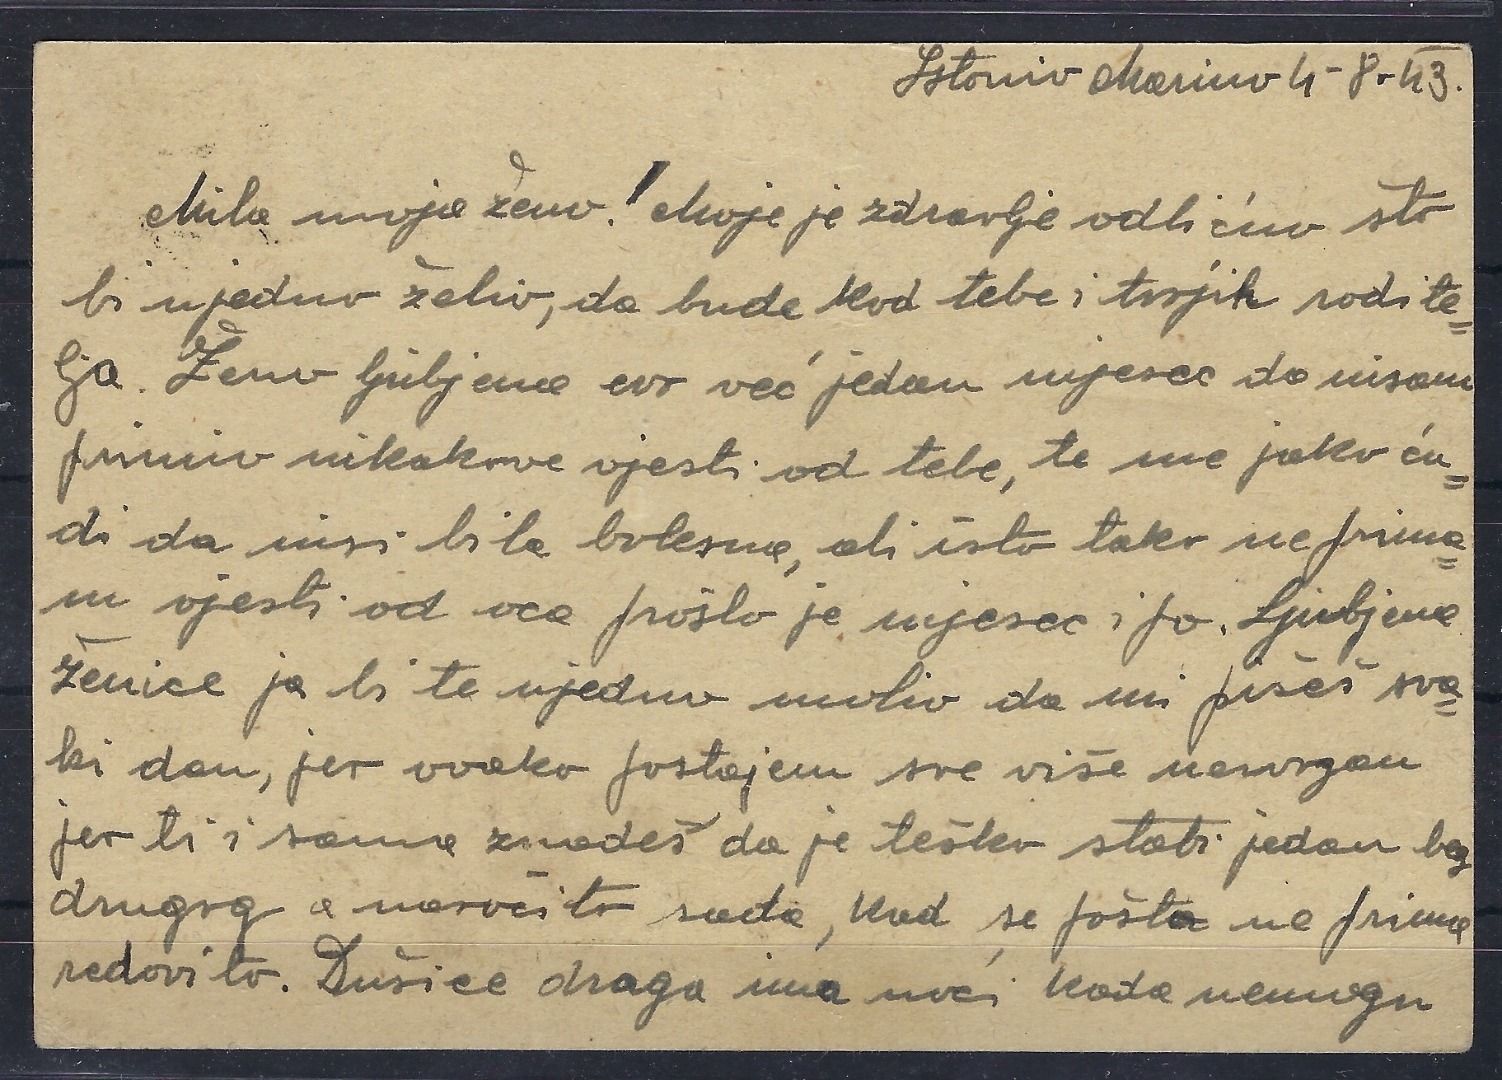 Istonio Marino 4-8-43.
Mila moja ženo! Moje je zdravlje odlićno što
bi ujedno želio, da bude kod tebe i tvojih rodite=
lja. Ženo ljubjena evo već jedan mjesec da nisam
primio nikakove vjesti od tebe, te me jako ću=
di da nisi bila bolesna, ali isto tako ne prima=
m vjesti od oca prošlo je mjesec i po. Ljubjena
ženice ja bi te ujedno molio da mi pišeš sva=
ki dan, jer ovako postajem sve više nervozan
jer ti i sama znadeš da je teško stati jedan bez
drugog a naročito sada, kad se pošta ne prima
redovito. Dušice draga ima noći kada nemogu